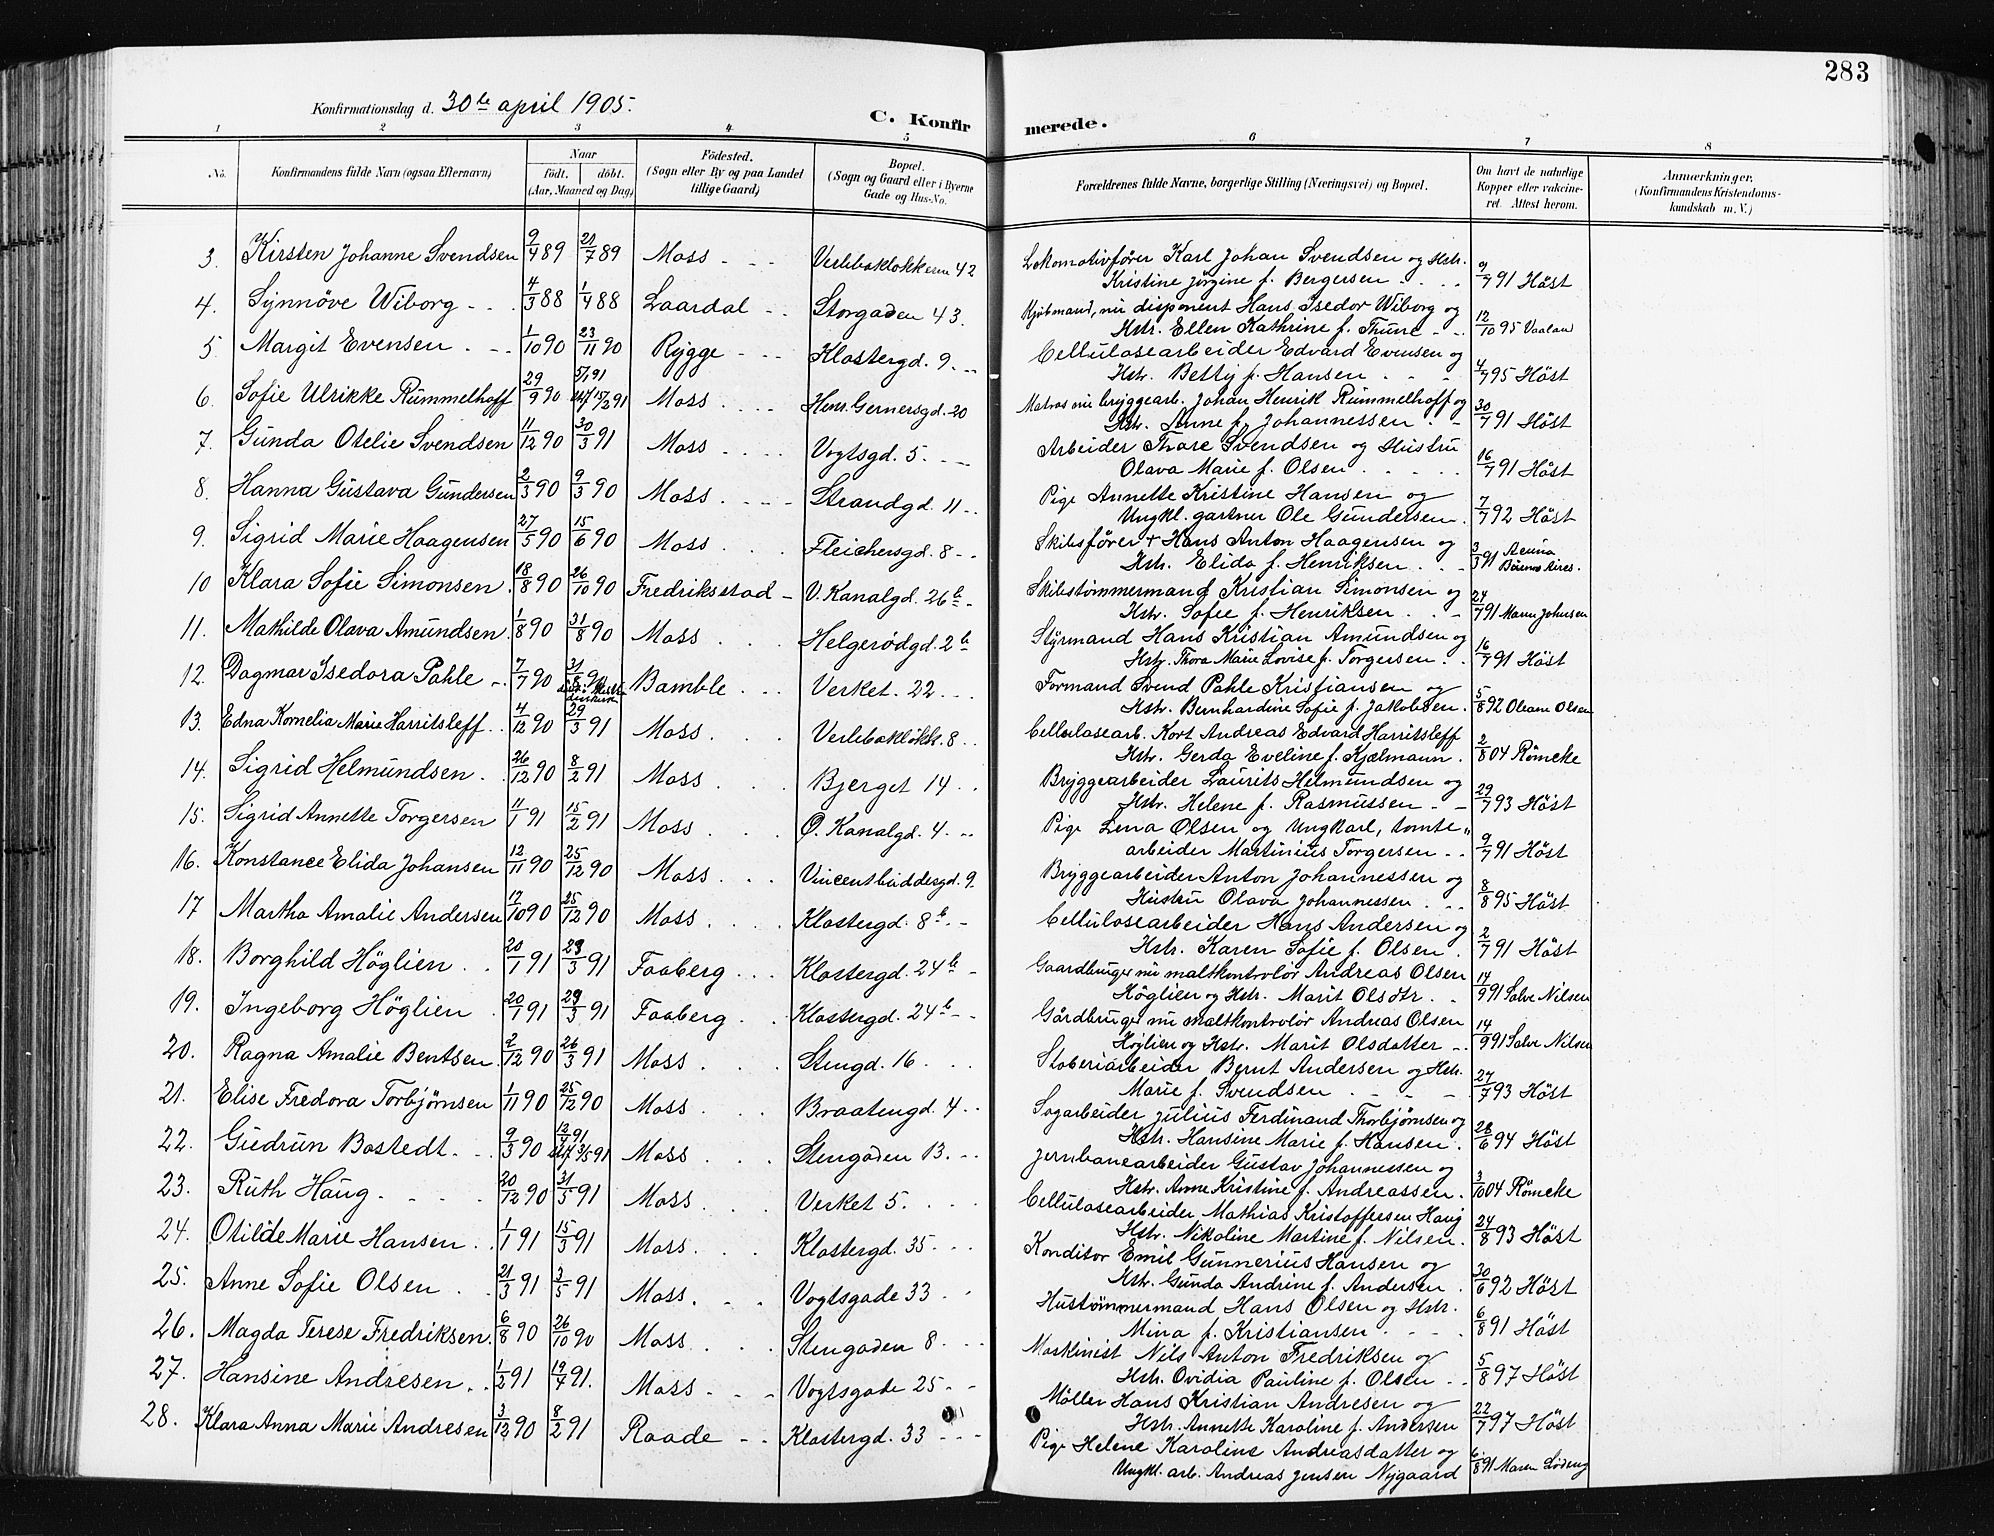 283
Konfirmationsdag d. 30te april 1905.
C. Konfirmerede.
1 2 3 4 5 6 7 8
No. Konfirmandens fulde Navn (ogsaa Efternavn) Naar födt. döbt. (Aar, Maaned og Dag) Födested. (Sogn eller By og paa Landet tillige Gaard) Bopæl. (Sogn og Gaard eller i Byerne Gade og Hus-No. Forældrenes fulde Navne, borgerlige Stilling (Næringsvei) og Bopæl. Om havt de naturlige Kopper eller vakcineret. Attest herom. Anmærkninger. (Konfirmandens Kristendomskundskab m. V.)
3. Kirsten Johanne Svendsen 9/4 89 21/7 89 Moss Verlebøkløkkerne 42 Lokomotivfører Karl Johan Svendsen og Hstr.
Kristine Jörgine f. Bergersen 9/7 91 Höst
4. Synnöve Wiborg 4/3 88 1/4 88 Laardal Storgaden 43. Kjöbmand, nu disponent Hans Isedor Wiborg og
Hstr. Ellen Kathrine f. Thune 12/10 95 Vaaland
5. Margit Evensen 1/10 90 23/11 90 Rygge Klostergd. 9. Cellulosearbeider Edvard Evensen og
Hstr. Betty f. Hansen 4/7 95 Höst
6. Sofie Ulrikke Rummelhoff 29/9 90 5/1 91 15/2 91 Moss Henr. Gernersgd. 20 Matros nu bryggearb. Johan Henrik Rummelhoff og
Hstr. Anne f. Johannessen 30/7 91 Höst
7. Gunda Otelie Svendsen 11/12 90 30/3 91 Moss Vogtsgd. 5. Arbeider Thore Svendsen og Hustru
Olava Marie f. Olsen 16/7 91 Höst
8. Hanna Gustava Gundersen 2/3 90 9/3 90 Moss Strandgd. 11 Pige Annette Kristine Hansen og
Ungkl. gartner Ole Gundersen. 7/7 92 Höst
9. Sigrid Marie Haagensen 27/5 90 15/6 90 Moss Fleichersgd. 8 Skibsfører + Hans Anton Haagensen og
Hstr. Elida f. Henriksen 3/3 91 Buenos Aires.
10 Klara Sofie Simonsen 18/8 90 26/10 90 Fredriksstad V. Kanalgd. 26b Skibstömmermand Kristian Simonsen og
Hstr. Sofie f. Henriksen 24/7 91 Maren Johnsen
11. Mathilde Olava Amundsen 1/8 90 31/8 90 Moss Helgerödgd. 2b Styrmand Hans Kristian Amundsen og
Hstr. Thora Marie Lovise f. Torgersen 16/7 91 Höst
12. Dagmar Isedora Pahle 7/7 90 31/8 90 Bamble Verket. 22 Formand Svend Pahle Kristiansen og
Hstr. Bernhardine Sofie f. Jakobsen. 5/8 92 Oleane Olsen
13. Edna Kornelia Marie Harritsleff 4/12 90 29/3 91 Moss Verlebøkløkk. 8 Cellulosearb. Kort Andreas Edvard Harritsleff
Hstr. Gerda Eveline f. Kjælmann. 2/8 04 Römcke
14. Sigrid Helmundsen 26/12 90 8/2 91 Moss Bjerget 14 Bryggearbeider Laurits Helmundsen og
Hstr. Helene f. Rasmussen 29/7 93 Höst
15. Sigrid Annette Torgersen 11/1 91 15/2 91 Moss Ø. Kanalgd. 4. Pige Lena Olsen og Ungkarl, tomte„
arbeider Martinius Torgersen 9/7 91 Höst
16. Konstance Elida Johansen 12/11 90 25/12 90 Moss Vincentbuddesgd. 9. Bryggearbeider Anton Johannessen og
Hustru Olava Johannessen 8/8 95 Höst
17 Martha Amalie Andersen 17/10 90 25/12 90 Moss Klostergd. 8b Cellulosearbeider Hans Andersen og
Hstr. Karen Sofie f. Olsen 2/7 91 Höst
18. Borghild Höglien 20/1 91 29/3 91 Faaberg Klostergd. 24b Gaardbruger nu maltkontrolör Andreas Olsen
Höglien og Hstr. Marit Olsdtr. 14/9 91 Salve Nilsen
19. Ingeborg Höglien 20/1 91 29/3 91 Faaberg Klostergd. 24b Gårdbruger nu maltkontrolör Andreas Olsen
Höglien og Hstr. Marit Olsdatter 14/9 91 Salve Nilsen
20. Ragna Amalie Bentsen 2/12 90 26/3 91 Moss Stengd. 16 Støberiarbeider Bernt Andersen og Hstr.
Marie f. Svendsen 27/7 93 Höst
21. Elise Fredora Torbjørnsen 1/11 90 25/12 90 Moss Braatengd. 4 Sagarbeider Julius Ferdinand Thorbjørnsen og
Hstr. Hansine Marie f. Hansen. 28/6 94 Höst
22. Gudrun Bostedt 9/3 90 12/4 91 3/5 91 Moss Stengaden 13. Jernbanearbeider Gustav Johannessen og
Hstr. Anne Kristine f. Andreassen. 3/10 04 Römcke
23. Ruth Haug 20/12 90 31/5 91 Moss Verket 5. Cellulosearbeider Mathias Kristoffersen Haug
Hstr. Nikoline Martine f. Nilsen. 24/8 93 Höst
24. Otilde Marie Hansen 1/1 91 15/3 91 Moss Klostergd. 35 Konditor Emil Gunnerius Hansen og
Hstr. Gunda Andrine f. Andersen 30/6 92 Höst
25. Anne Sofie Olsen 21/3 91 3/5 91 Moss Vogtsgade 33 Hustömmermand Hans Olsen og Hstr.
Mina f. Kristiansen 6/8 91 Höst
26. Magda Terese Fredriksen 6/8 90 26/10 90 Moss Stengaden 8 Maskinist Nils Anton Fredriksen og
Hstr. Ovidia Pauline f. Olsen 5/8 97 Höst
27. Hansine Andresen 1/2 91 19/4 91. Moss Vogtsgade 25 Möller Hans Kristian Andresen og
Hstr. Annette Karoline f. Andersen 22/7 97 Höst
28. Klara Anna Marie Andresen 3/12 90 8/2 91 Raade Klostergd. 33 Pige Helene Karoline Andreasdatter og
Ungkl. arb. Andreas Jensen Nygaard 6/8 91 Maren